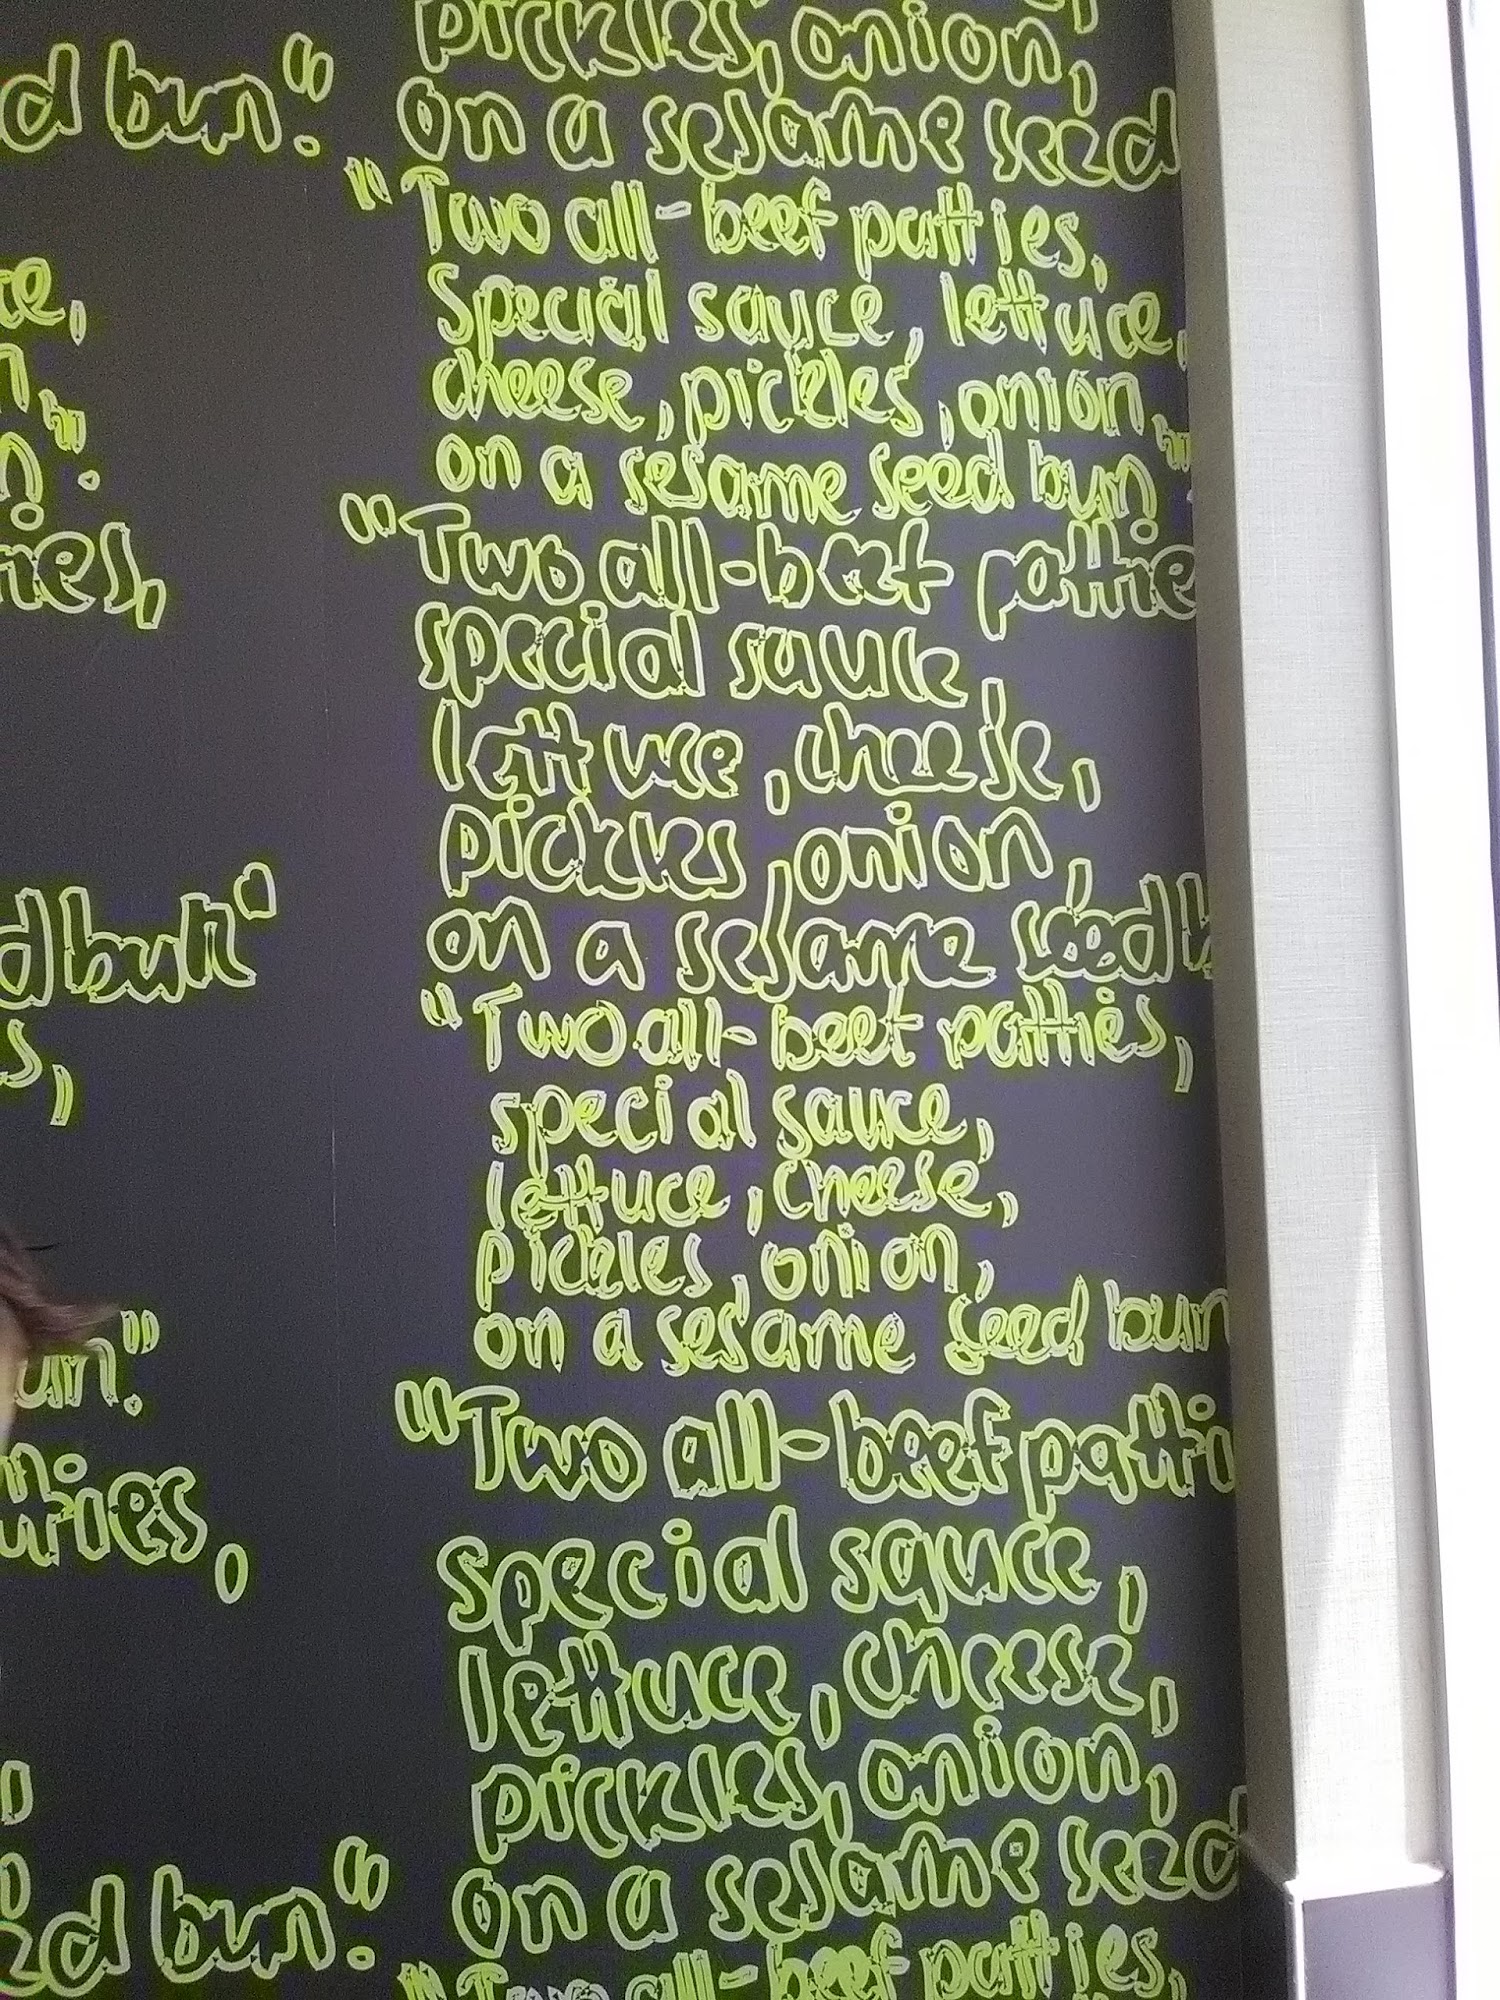 d bun."
ce,
n,
n".
ies,
d bun"
s,
un."
tties,
ed bun."
pickles, onion,
on a sesame seed
"Two all-beef patties,
special sauce, lettuce,
cheese, pickles, onion,
on a sesame seed bun"
"Two all-beef pattie
special sauce,
lettuce, cheese,
pickles, onion,
on a sesame seed b
"Two all-beef patties,
special sauce,
lettuce, cheese,
pickles, onion,
on a sesame seed bun
"Two all-beef patti
special sauce,
lettuce, cheese,
pickles, onion,
on a sesame seed
"Two all-beef patties,